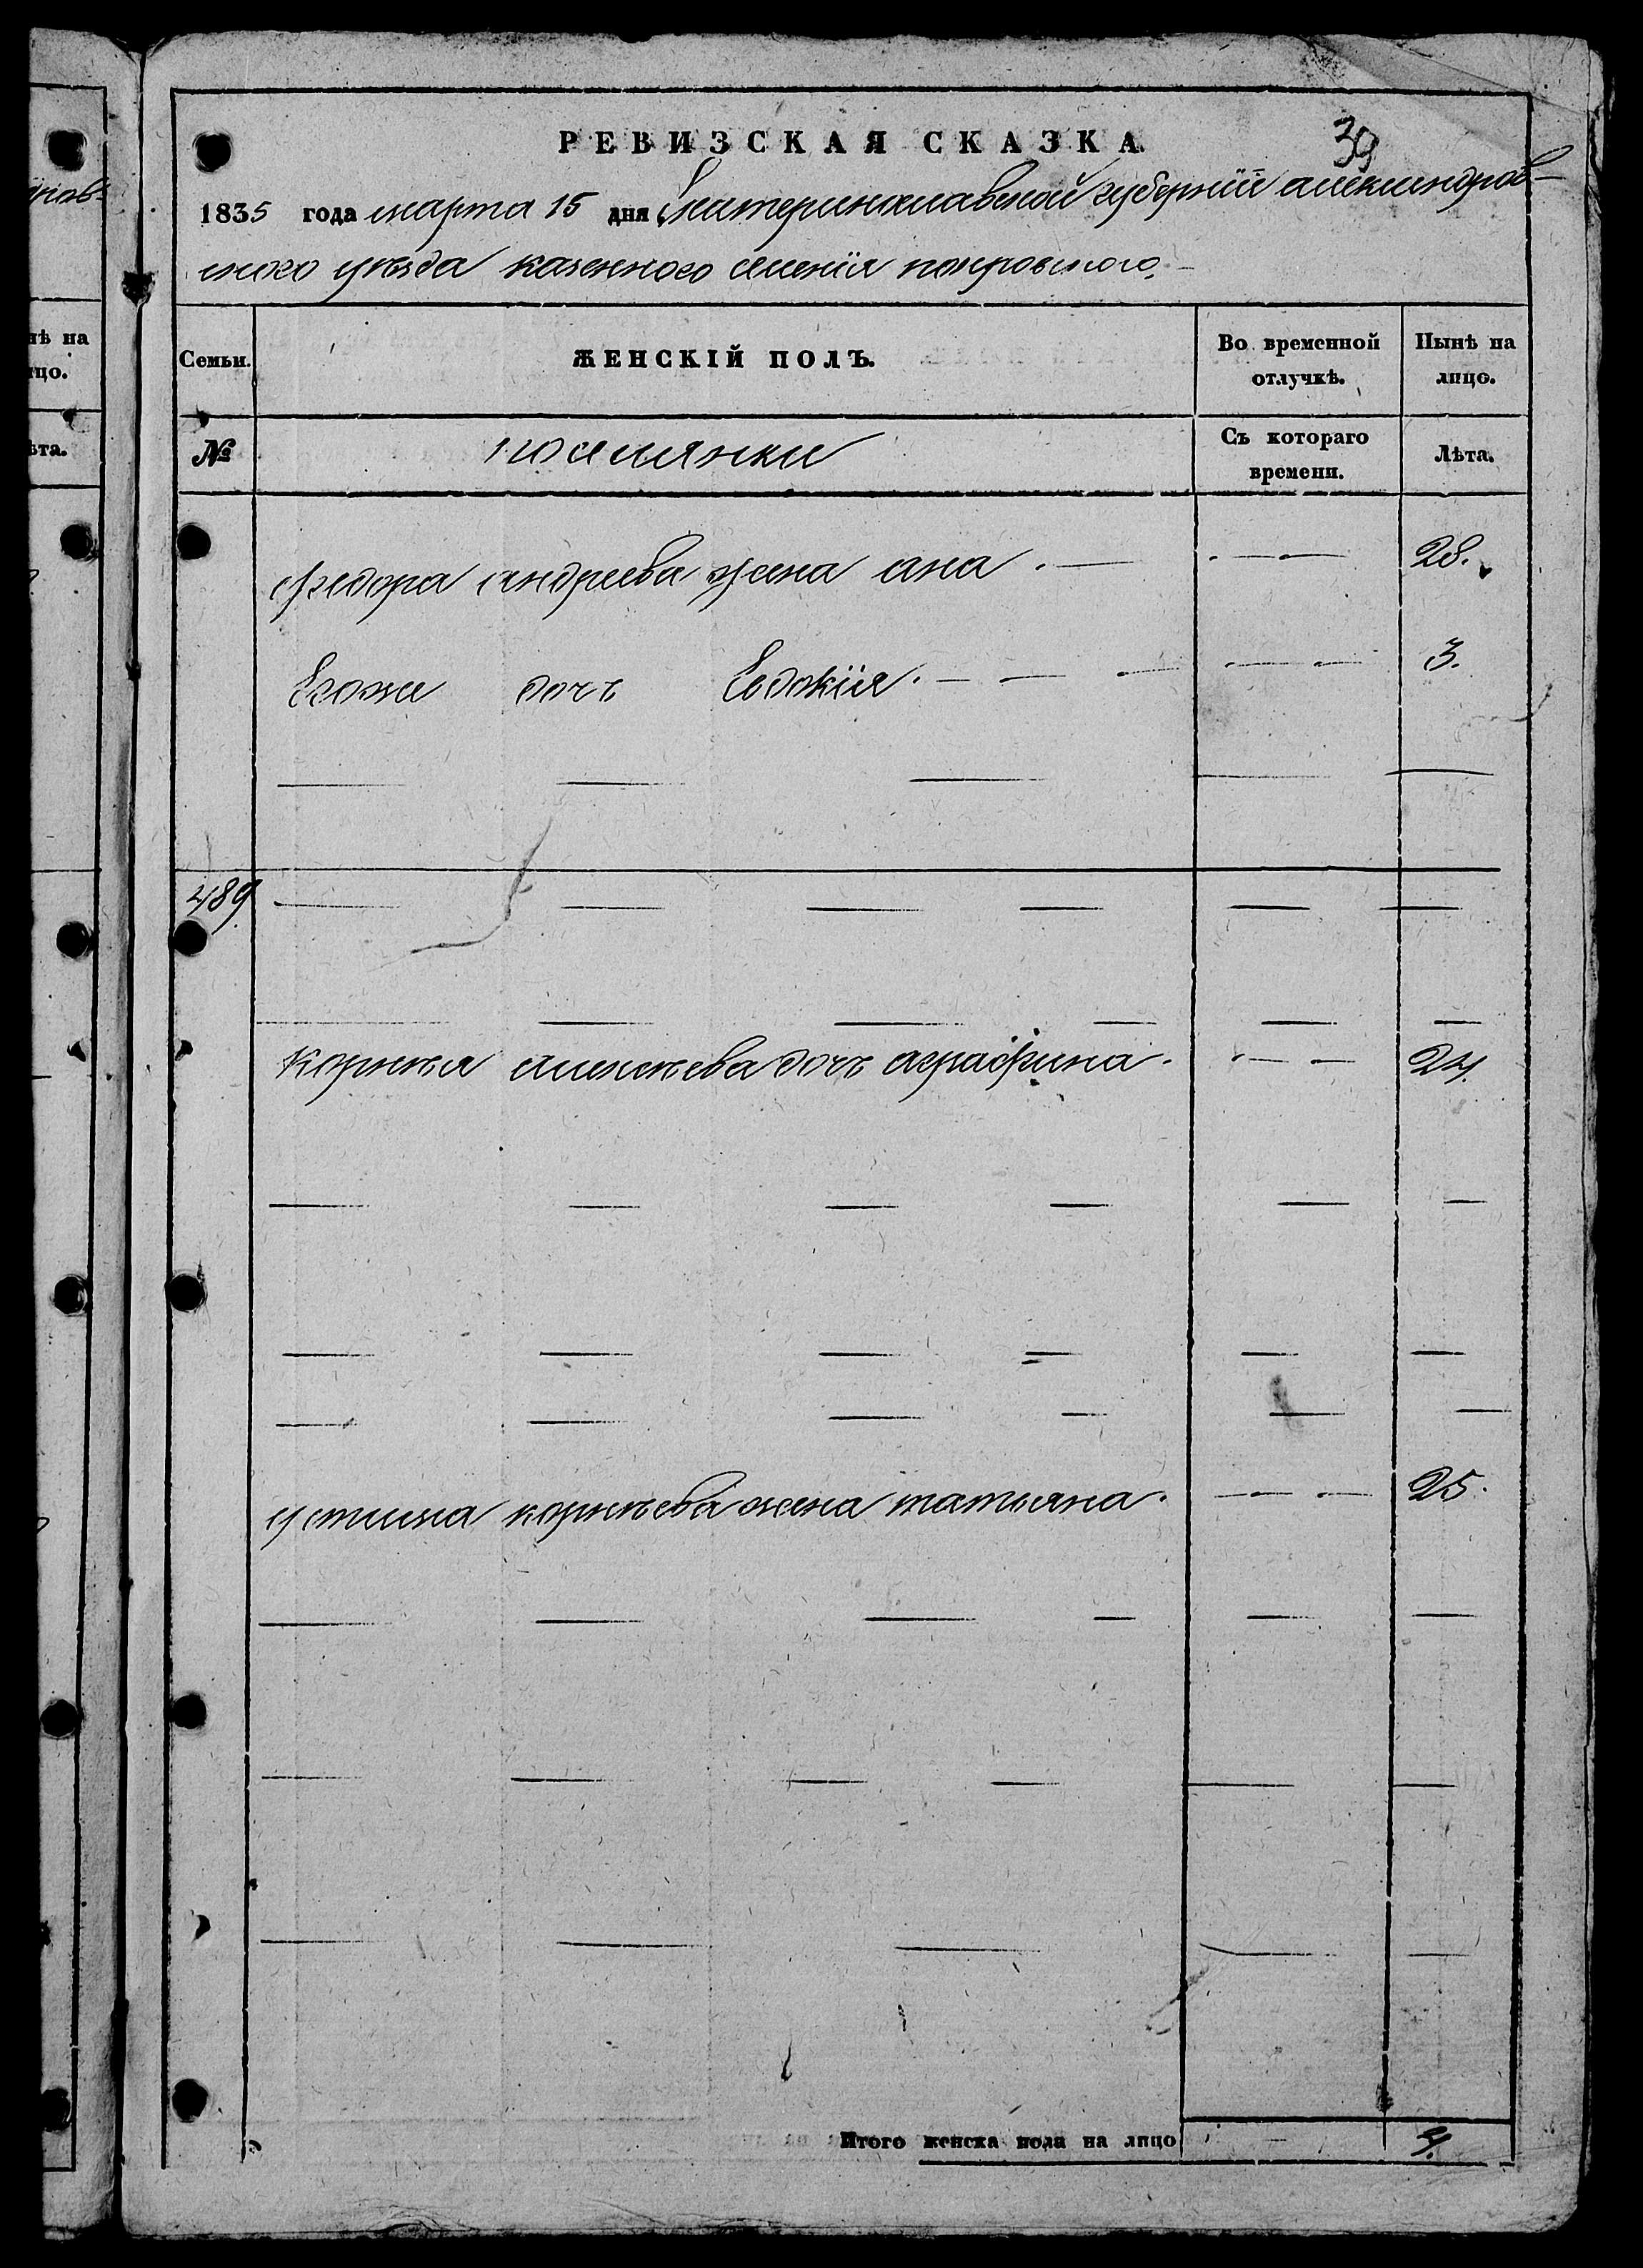 39
РЕВИЗСКАЯ СКАЗКА
1835 года марта 15 дня Екатеринославской губернїи александров-
ского уѣзда казенного селенїя покровского.
Семьи. ЖЕНСКІЙ ПОЛЪ. Во временной отлучкѣ. Нынѣ на лицо.
№ поселянки Съ котораго времени. Лѣта.
федора андреева жена ана . — — — 28.
Егоже дочь Евдокїя . — — — — — 3.
489
Корнѣя дочь аграфина . — — 24.
устина корнѣева жена татьяна . — — 25.
Итого женска пола на лицо 4.
нѣ на
цо.
ѣта.